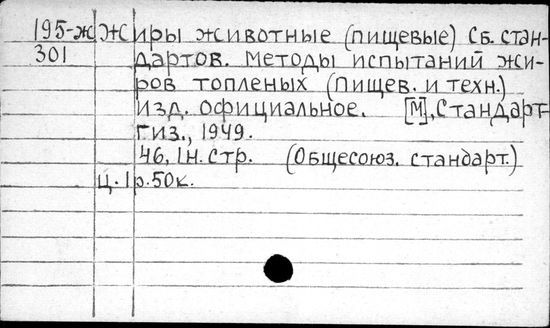 195-ж Жиры животные (пищевые) Сб. стан-
301 дартов. Методы испытаний жи-
ров топленых (пищев. и техн.)
изд. официальное. [М], Стандарт-
гиз., 1949.
46, 1н. стр. (Общесоюз. стандарт.)
Ц. 1р. 50к.